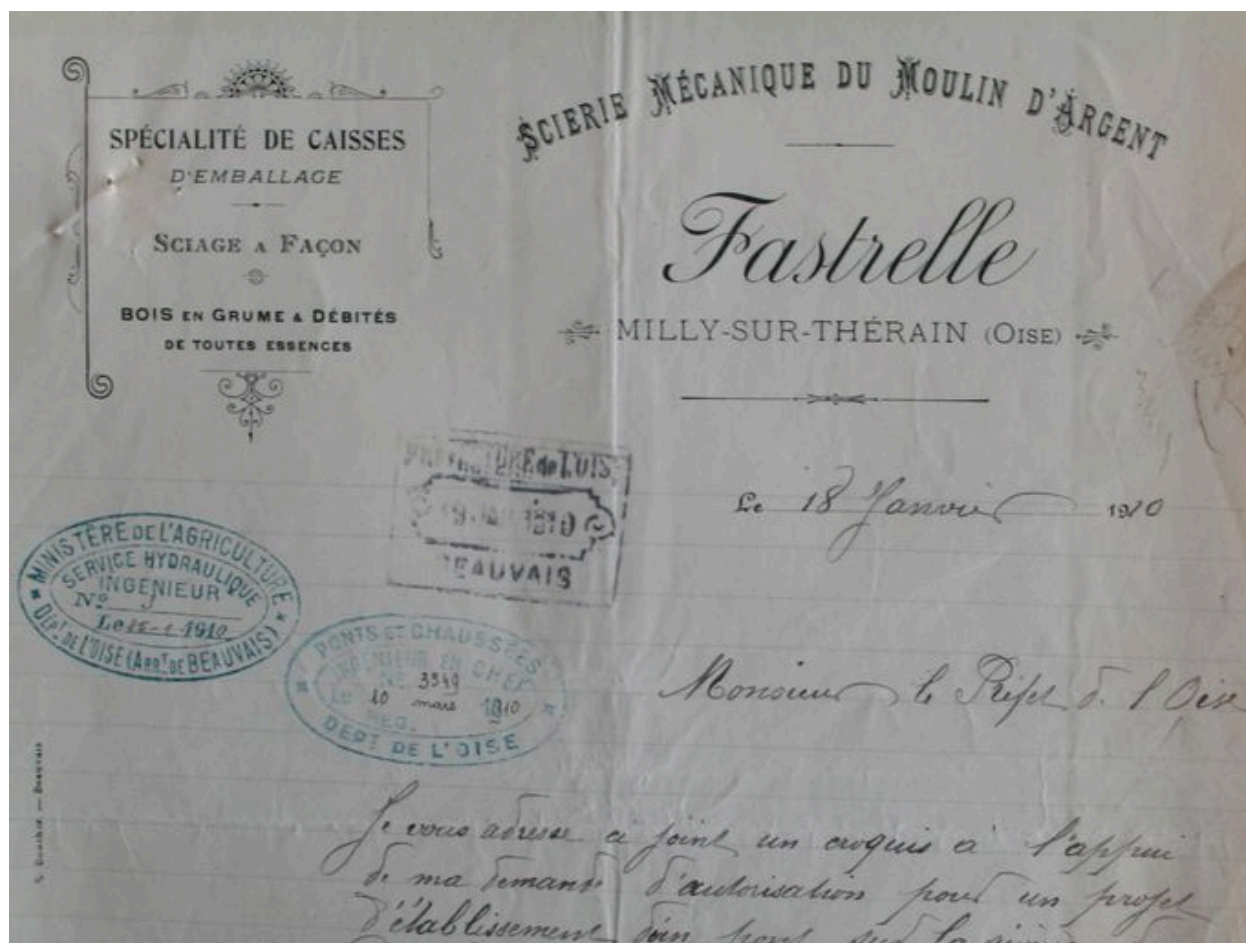 SPÉCIALITÉ DE CAISSES
D'EMBALLAGE
SCIAGE A FAÇON
BOIS EN GRUME & DÉBITÉS
DE TOUTES ESSENCES
SCIERIE MÉCANIQUE DU MOULIN D'ARGENT
Fastrelle
MILLY-SUR-THÉRAIN (OISE)
Le 18 Janvier 1910
PRÉFECTURE de L'OISE
JAN 1910
BEAUVAIS
MINISTÈRE DE L'AGRICULTURE
SERVICE HYDRAULIQUE
INGENIEUR
No
Le 1910
DEPT. DE L'OISE (ARRT. DE BEAUVAIS)
PONTS ET CHAUSSÉES
INGENIEUR EN CHEF
No 3349
Le 10 mars 1910
REG.
DEPT DE L'OISE
Monsieur le Préfet de l'Oise
Je vous adresse ci joint un croquis à l'appui
de ma demande d'autorisation pour un projet
d'établissement d'un pont sur la
Beauvais